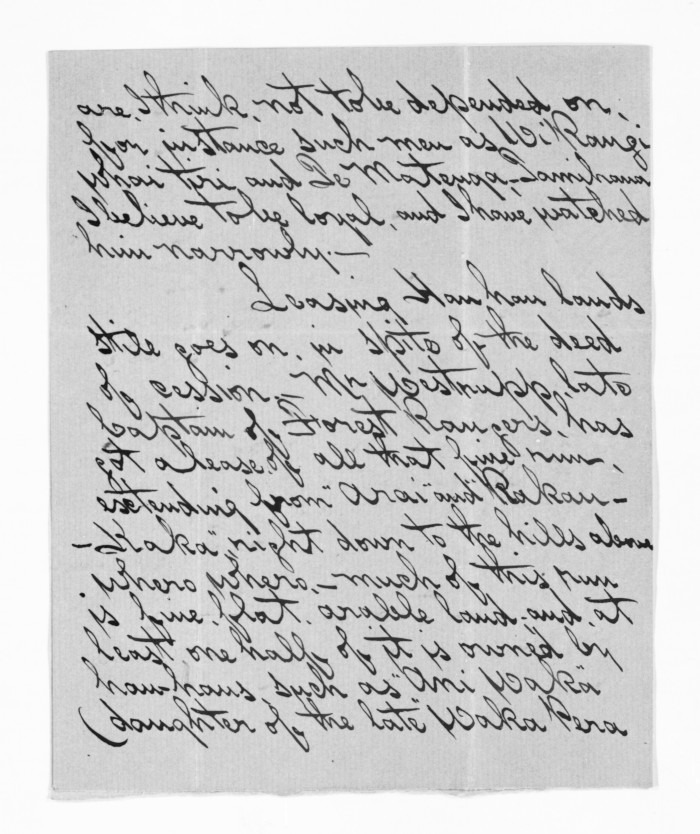 are, I think, not to be depended on,
for instance such men as Wi Rangi
Whai tiri, and Te Matenga, Tamihana
I believe to be loyal, and I have watched
him narrowly. —
Leasing Hau hau lands
still goes on, in spite of the deed
of cession, — Mr Westrupp, late
Captain of Forest Rangers, has
got a lease of all that fine run,
extending from "Arai" and "Kakau-
-Kaka", right down to the hills above
Whero whero, — much of this run
is fine, flat, arable land, and, at
least one half, of it is owned by
hau-haus such as "Ani Waka"
(daughter of the late "Waka Pera